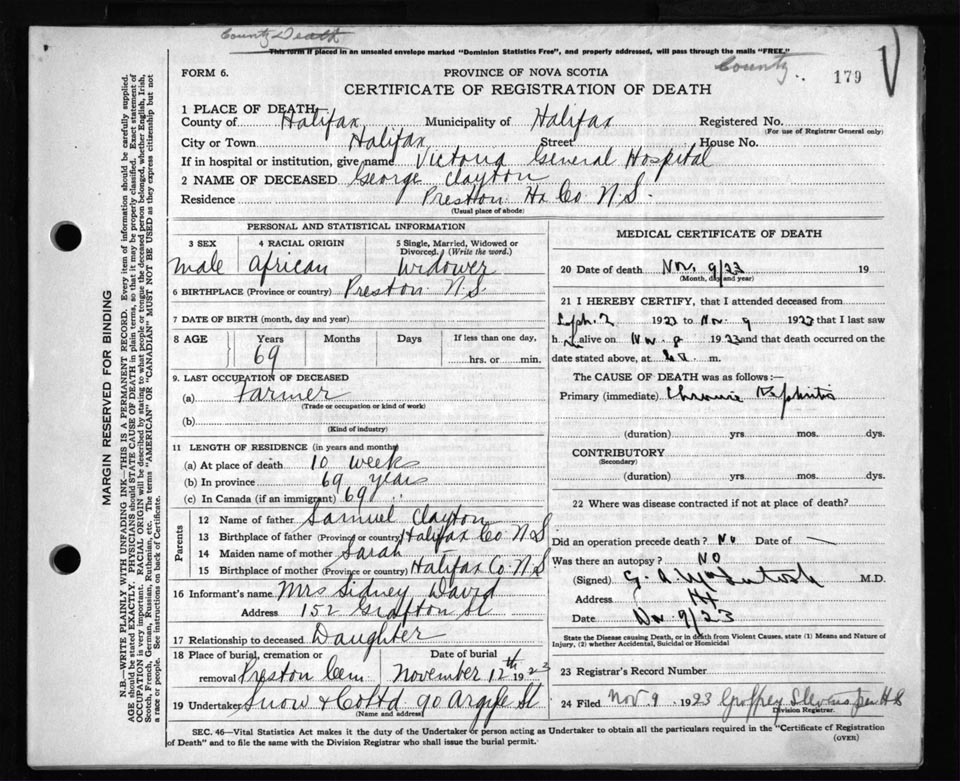 County Death
This form if placed in an unsealed envelope marked "Dominion Statistics Free", and properly addressed, will pass through the mails "FREE."
County
179
FORM 6.
PROVINCE OF NOVA SCOTIA
CERTIFICATE OF REGISTRATION OF DEATH
1 PLACE OF DEATH
County of Halifax Municipality of Halifax Registered No.
(For use of Registrar General only)
City or Town Halifax Street House No.
If in hospital or institution, give name Victoria General Hospital
2 NAME OF DECEASED George Clayton
Residence Preston Hx Co N.S.
(Usual place of abode)
PERSONAL AND STATISTICAL INFORMATION
3 SEX 4 RACIAL ORIGIN 5 Single, Married, Widowed or Divorced. (Write the word.)
male African Widower
6 BIRTHPLACE (Province or country) Preston N.S.
7 DATE OF BIRTH (month, day and year)
8 AGE Years Months Days If less than one day,
69 hrs. or min.
9. LAST OCCUPATION OF DECEASED
(a) Farmer
(Trade or occupation or kind of work)
(b)
(Kind of industry)
11 LENGTH OF RESIDENCE (in years and months)
(a) At place of death 10 weeks
(b) In province 69 years
(c) In Canada (if an immigrant) 69
Parents
12 Name of father Samuel Clayton
13 Birthplace of father (Province or country) Halifax Co N.S
14 Maiden name of mother Sarah
15 Birthplace of mother (Province or country) Halifax Co. N.S
16 Informant's name Mrs Sidney David
Address 152 Grafton St
17 Relationship to deceased Daughter
18 Place of burial, cremation or removal Preston Cem
Date of burial November 12th 1923
19 Undertaker Snow & Co Ltd 90 Argyle St
(Name and address)
MEDICAL CERTIFICATE OF DEATH
20 Date of death Nov. 9/23 19
(Month, day and year)
21 I HEREBY CERTIFY, that I attended deceased from
Sept. 2 1923 to Nov. 9 1923 that I last saw
h alive on Nov. 8 1923 and that death occurred on the
date stated above, at m.
The CAUSE OF DEATH was as follows:—
Primary (immediate) Chronic Nephritis
(duration) yrs. mos. dys.
CONTRIBUTORY
(Secondary)
(duration) yrs. mos. dys.
22 Where was disease contracted if not at place of death?
Did an operation precede death? No Date of —
Was there an autopsy? NO
(Signed) G. A. McIntosh M.D.
Address Hx
Date Nov. 9/23
State the Disease causing Death, or in death from Violent Causes, state (1) Means and Nature of
Injury, (2) whether Accidental, Suicidal or Homicidal
23 Registrar's Record Number
24 Filed Nov 9 1923
Division Registrar.
SEC. 46—Vital Statistics Act makes it the duty of the Undertaker or person acting as Undertaker to obtain all the particulars required in the "Certificate of Registration
of Death" and to file the same with the Division Registrar who shall issue the burial permit.
(OVER)
MARGIN RESERVED FOR BINDING
N.B.—WRITE PLAINLY WITH UNFADING INK—THIS IS A PERMANENT RECORD. Every item of information should be carefully supplied.
AGE should be stated EXACTLY. PHYSICIANS should STATE CAUSE OF DEATH in plain terms, so that it may be properly classified. Exact statement of
OCCUPATION is very important. RACIAL ORIGIN will be described by stating to what people or tongue the deceased person belonged, whether English, Irish,
Scotch, French, German, Russian, Ruthenian, etc. The terms "AMERICAN" or "CANADIAN" MUST NOT BE USED as they express citizenship but not
a race or people. See instructions on back of Certificate.